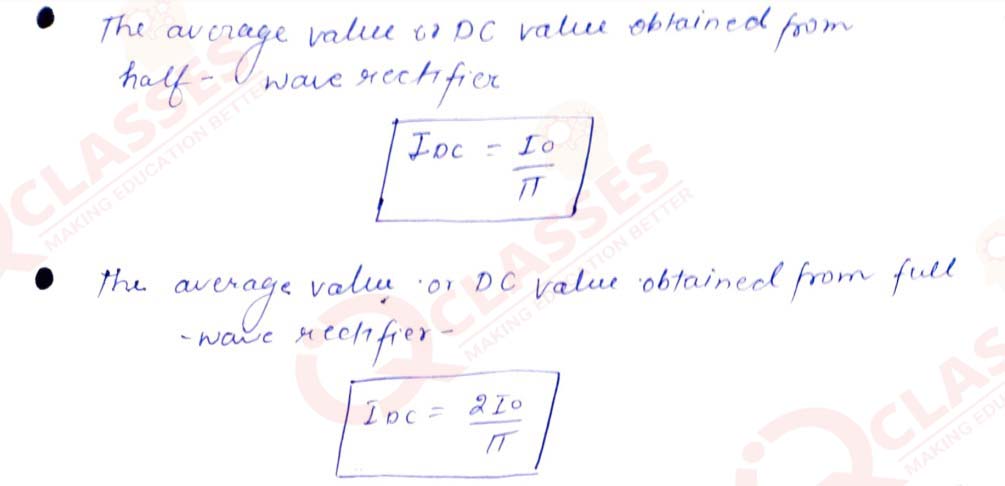 The average value or DC value obtained from
half - wave rectifier
IDC = I0/π
the average value or DC value obtained from full
-wave rectifier-
IDC = 2I0/π
CLASSES
MAKING EDUCATION BETTER
CLASSES
MAKING EDUCATION BETTER
CLAS
MAKING EDU